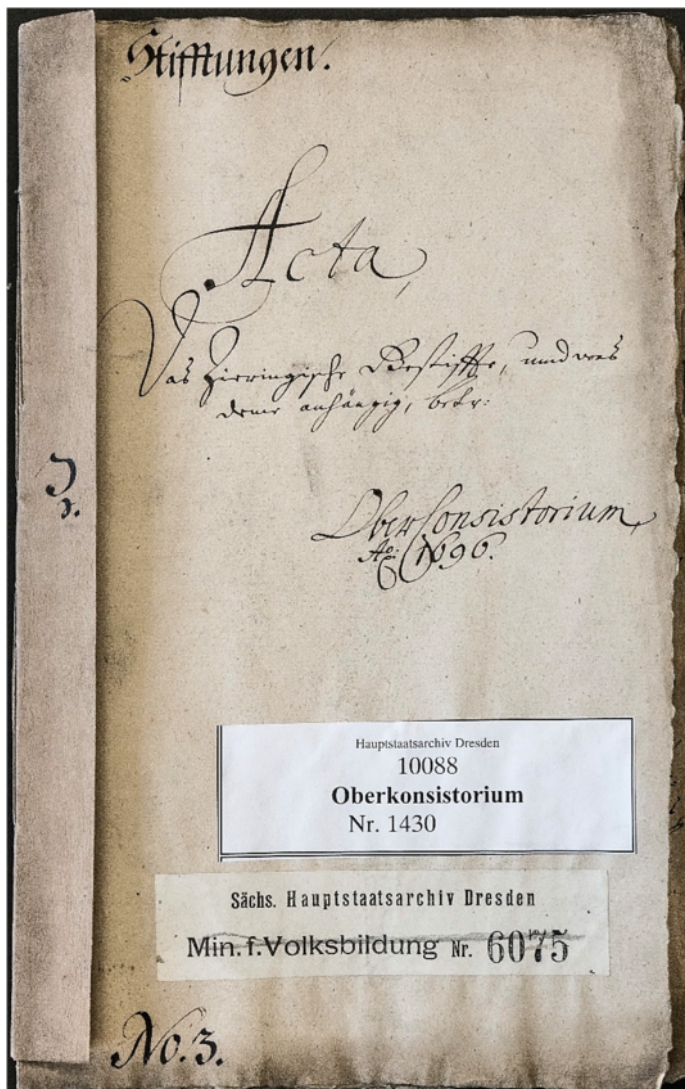 Stifftungen.
Acta,
Das Zieringische Gestiffte, und was
deme anhängig, betr:
J
OberConsistorium,
Ao: 1696.
Hauptstaatsarchiv Dresden
10088
Oberkonsistorium
Nr. 1430
Sächs. Hauptstaatsarchiv Dresden
Min. f. Volksbildung Nr. 6075
No. 3.